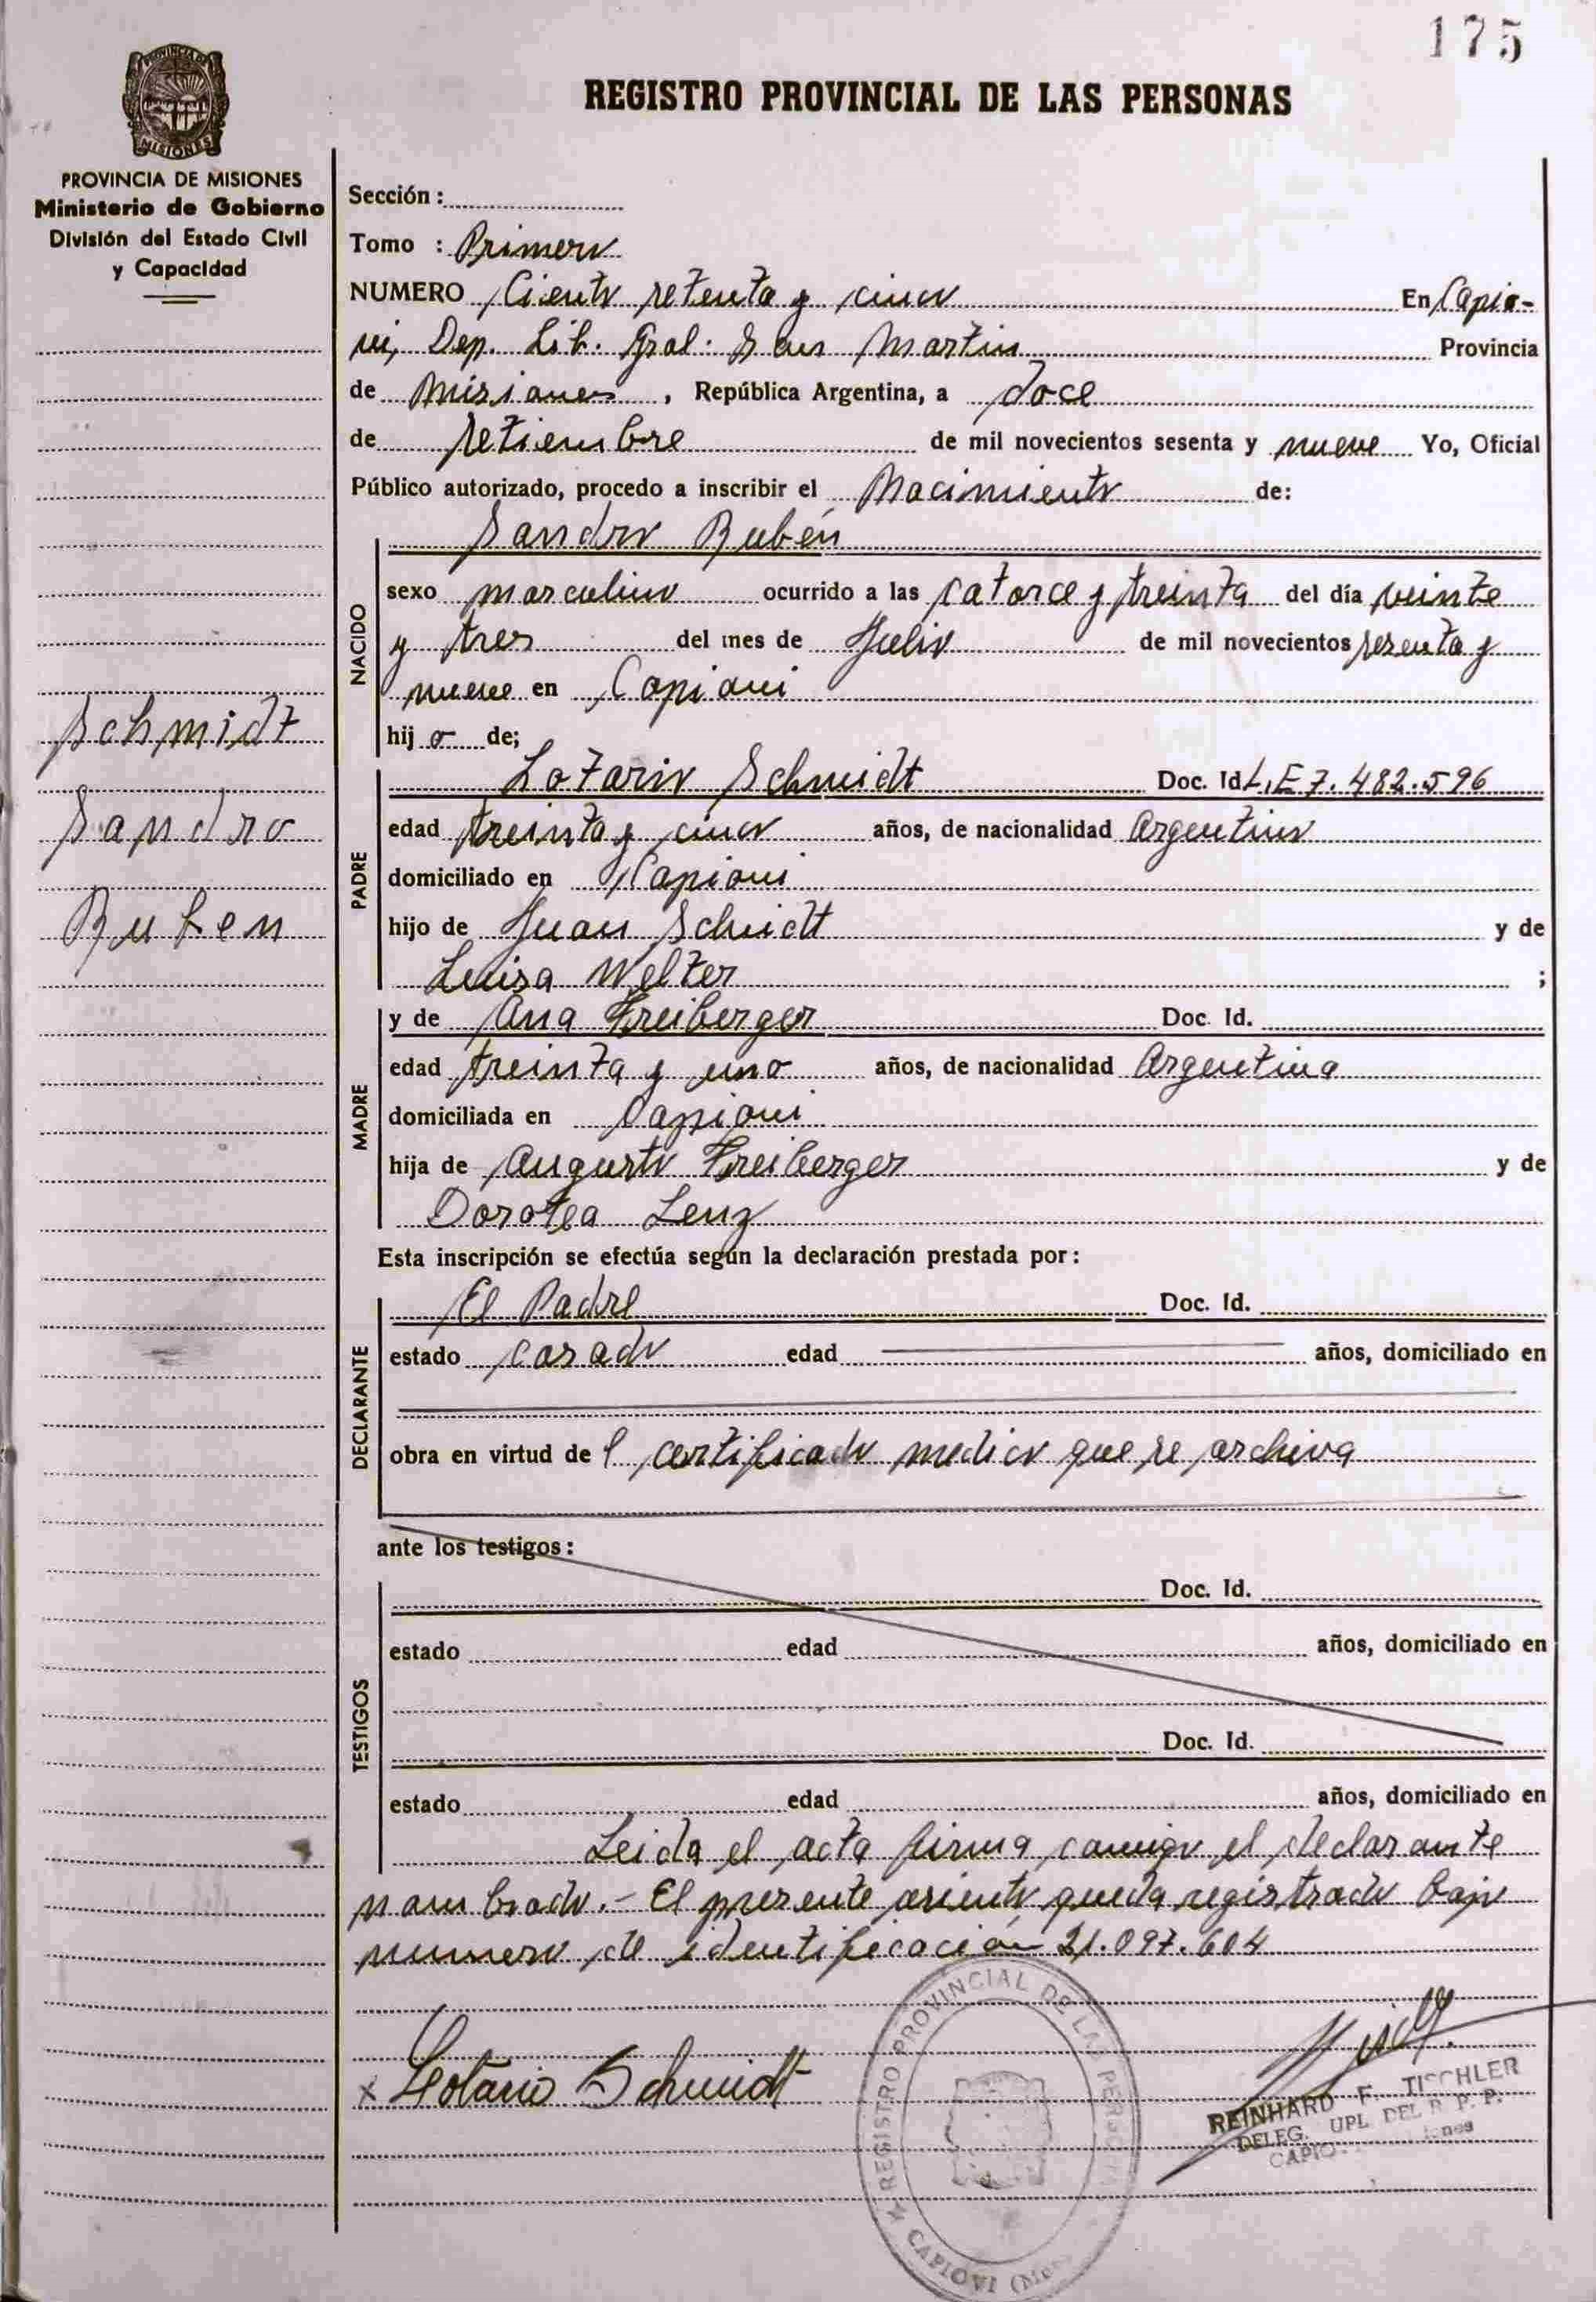 175
REGISTRO PROVINCIAL DE LAS PERSONAS
PROVINCIA DE MISIONES
MISIONES
PROVINCIA DE MISIONES
Ministerio de Gobierno
División del Estado Civil
y Capacidad
Schmidt
Sandro
Ruben
Sección :
Tomo : Primero
NUMERO Ciento setenta y cinco En Capio-
vi, Dep. Lib. Gral. San Martin Provincia
de Misiones , República Argentina, a doce
de setiembre de mil novecientos sesenta y nueve Yo, Oficial
Público autorizado, procedo a inscribir el Nacimiento de:
Sandro Rubén
NACIDO
sexo masculino ocurrido a las catorce y treinta del día veinte
y tres del mes de Julio de mil novecientos sesenta y
nueve en Capiovi
hij o de;
PADRE
Lotario Schmidt Doc. Id L.E 7.482.596
edad treinta y cinco años, de nacionalidad Argentino
domiciliado en Capiovi
hijo de Juan Schmidt y de
Luisa Welter ;
MADRE
y de Ana Freiberger Doc. Id.
edad treinta y uno años, de nacionalidad Argentina
domiciliada en Capiovi
hija de Augusto Freiberger y de
Dorotea Lenz
Esta inscripción se efectúa según la declaración prestada por:
DECLARANTE
El Padre Doc. Id.
estado casado edad años, domiciliado en
obra en virtud de l certificado medico que se archiva
ante los testigos:
TESTIGOS
Doc. Id.
estado edad años, domiciliado en
Doc. Id.
estado edad años, domiciliado en
Leida el acta firma conmigo el declarante
nombrado.- El presente asiento queda registrado bajo
numero de identificación 21.097.604
x Lotario Schmidt
REGISTRO PROVINCIAL DE LAS PERSONAS
CAPIOVI
REINHARD F. TISCHLER
DELEG. UPL DEL R. P. P.